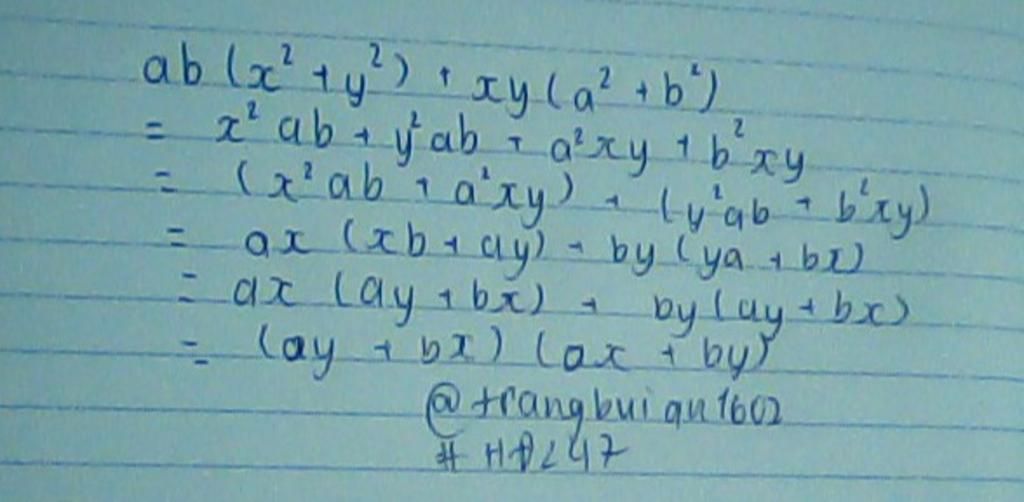 ab (x² + y²) + xy (a² + b²)
= x² ab + y² ab + a² xy + b² xy
= (x² ab + a² xy) + (y² ab + b² xy)
= ax (xb + ay) + by (ya + bx)
= ax (ay + bx) + by (ay + bx)
= (ay + bx) (ax + by)